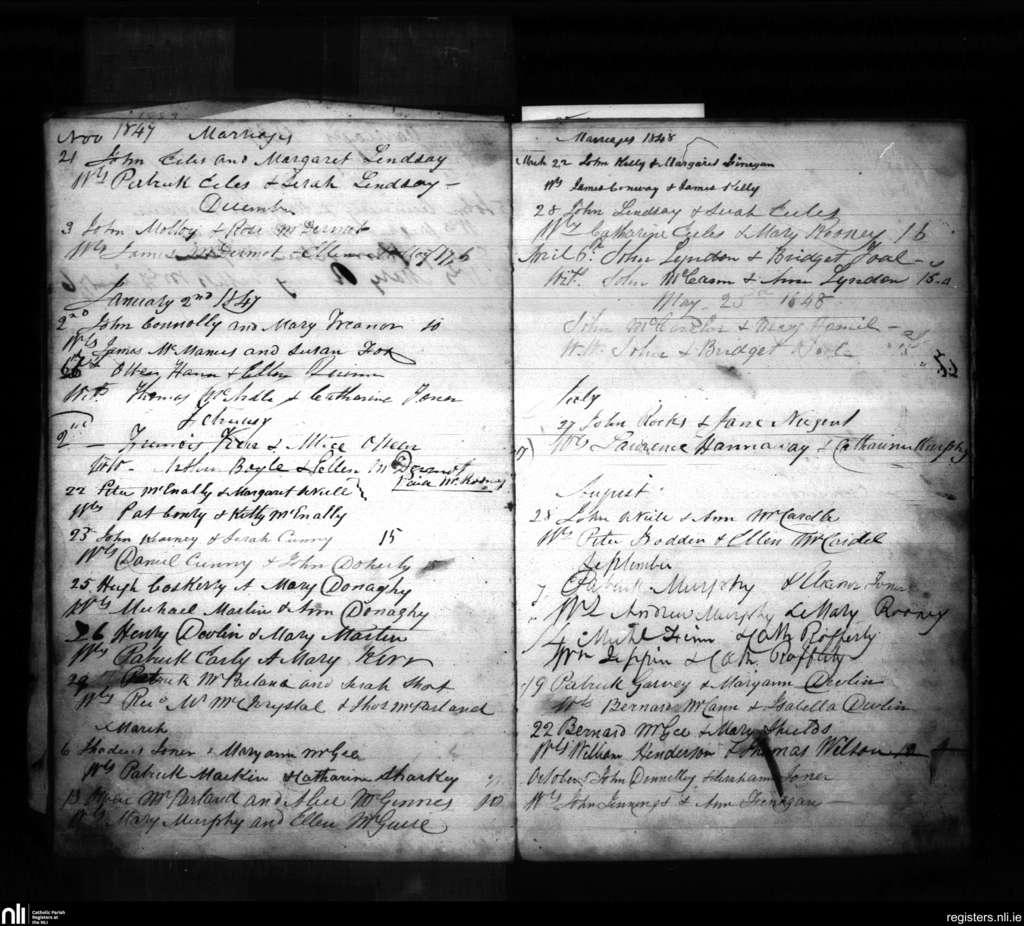 Nov 1847 Marriages
21 John Eeles and Margaret Lindsay
Wts Patrick Eeles & Sarah Lindsay -
December
3 John Molloy & Rose McDermot
Wts James McDermot & Ellen Molloy 17,6
January 2nd 1847
2nd John Connolly and Mary Treanor 10
Wts James McManus and Susan Fox
Owen Hann & Ellen Quinn
Wits Thomas & Catharine Joner
February
2nd - Francis & Alice
Witt- Arthur Boyle & Ellen McDermot
22 Peter McEnally & Margaret
Wts Pat Conry & Kitty McEnally
23 John Kearney & Sarah Cunny 15
Wts Daniel Cunny & John Doherty
25 Hugh Coskerry & Mary Donaghy
Wts Michael Martin & Ann Donaghy
26 Henry Devlin & Mary Martin
Wts Patrick Early & Mary Kerr
29 Patrick McParland and Sarah Short
Wts Revd Mr McChrystal & Thos McParland
March
6 Thadeus Joner & Maryann McGee
Wts Patrick Mackin & Catharine Sharkey
13 McParland and Alice McGinnes 10
Wts Mary Murphy and Ellen McGuire
Marriages 1848
March 22 John Kelly & Margaret Finegan
Wts James Conway & James Kelly
28 John Lindsay & Sarah Eeles
Wts Catharine Eeles & Mary Rooney 16
April 6th John Lyndon & Bridget Toal -
Wit. John McCann & Ann Lyndon 15-0
May 25th 1848
John & Mary Hamil -
Witt. John & Bridget
July
27 John Rocks & Jane Nugent
Wts Lawrence Hannaway & Catharine Murphy
August
28 John & Ann McCardle
Wts Peter Hodden & Ellen McCardel
September
7 Patrick Murphy & Eleanor Joner
Wts Andrew Murphy & Mary Rooney
14 Michl Finn & Cath Rafferty
Wm Tippin & Cath. Rafferty
19 Patrick Garvey & Maryann Devlin
Wts Bernard McCann & Isabella Devlin
22 Bernard McGee & Mary Shields
Wts William Henderson & Thomas Wilson
October John Donnelly & Joner
Wts John Jennings & Ann Finnegan
nli
Catholic Parish
Registers at
the NLI
registers.nli.ie